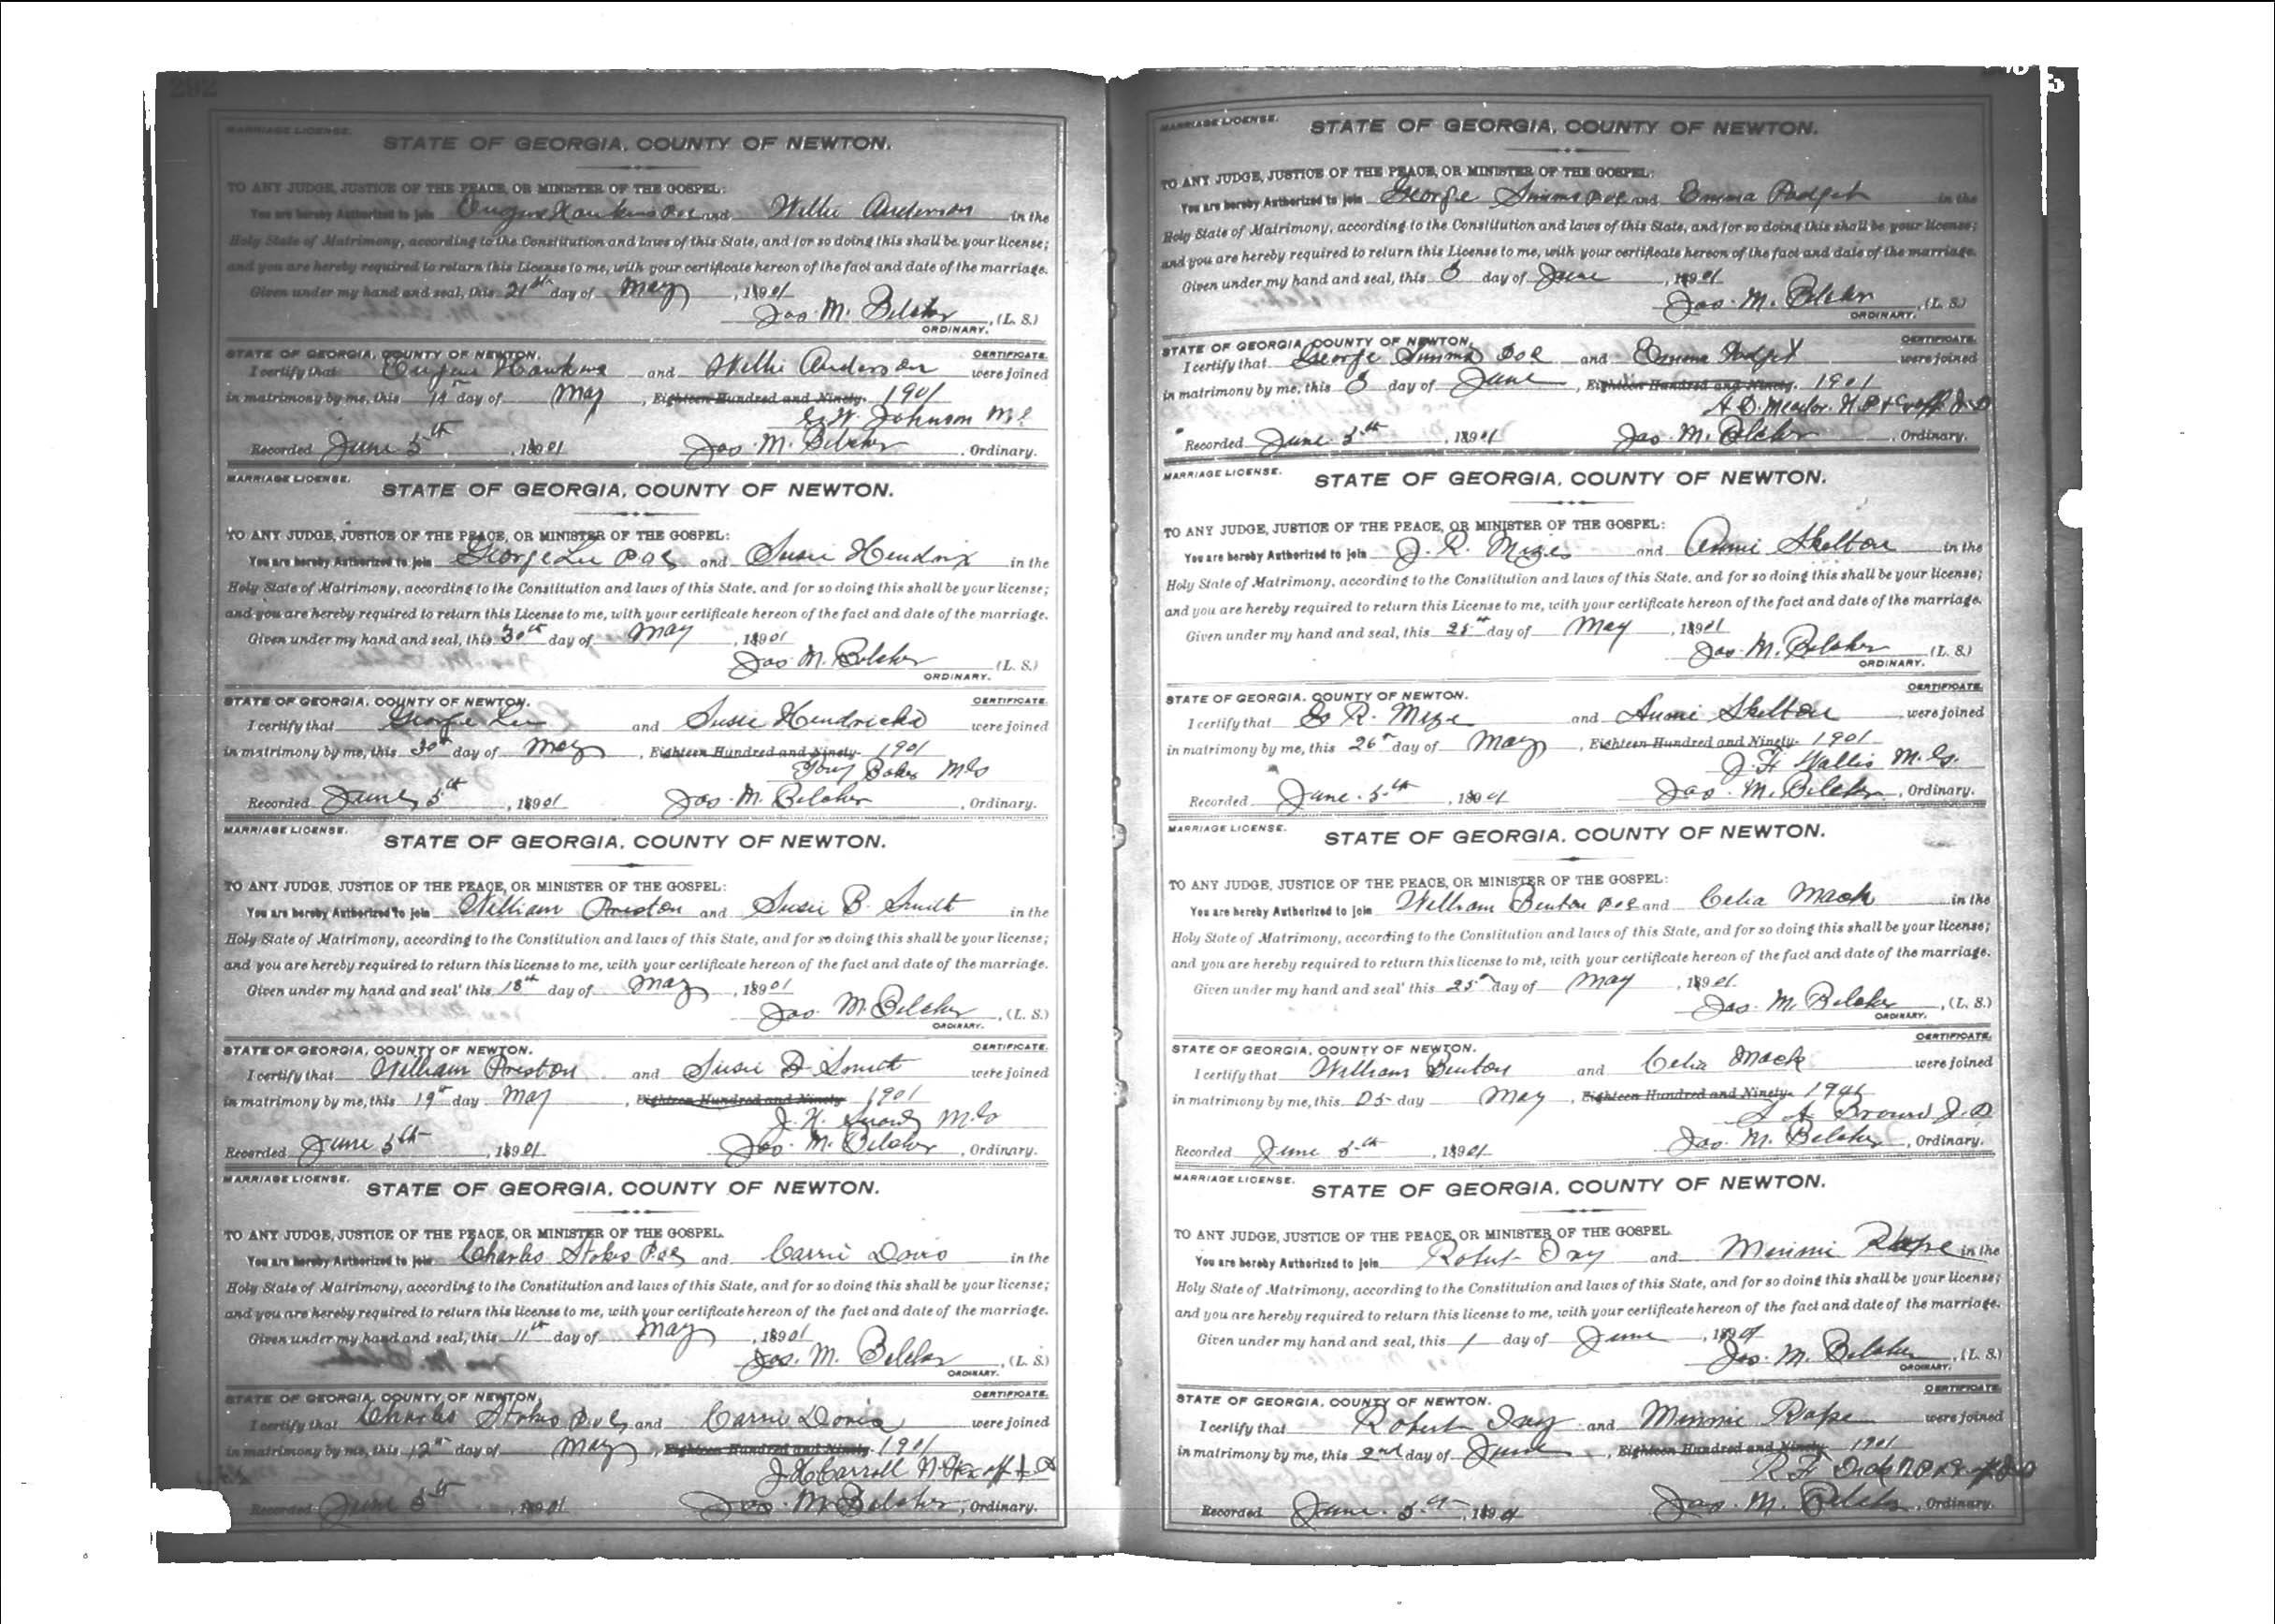 292
MARRIAGE LICENSE.
STATE OF GEORGIA, COUNTY OF NEWTON.
TO ANY JUDGE, JUSTICE OF THE PEACE, OR MINISTER OF THE GOSPEL:
You are hereby Authorized to join Eugene Hawkins and Willie Anderson in the
Holy State of Matrimony, according to the Constitution and laws of this State, and for so doing this shall be your license;
and you are hereby required to return this License to me, with your certificate hereon of the fact and date of the marriage.
Given under my hand and seal, this 21st day of May, 1901
Jas. M. Belcher, (L. S.)
ORDINARY.
STATE OF GEORGIA, COUNTY OF NEWTON. CERTIFICATE.
I certify that Eugene Hawkins and Willie Anderson were joined
in matrimony by me, this day of May, Eighteen Hundred and Ninety- 1901
Johnson
Recorded June 5th, 1901 Jas. M. Belcher, Ordinary.
MARRIAGE LICENSE.
STATE OF GEORGIA, COUNTY OF NEWTON.
TO ANY JUDGE, JUSTICE OF THE PEACE, OR MINISTER OF THE GOSPEL:
You are hereby Authorized to join George Lee and Susie Hendrix in the
Holy State of Matrimony, according to the Constitution and laws of this State, and for so doing this shall be your license;
and you are hereby required to return this License to me, with your certificate hereon of the fact and date of the marriage.
Given under my hand and seal, this 30th day of May, 1901
Jas. M. Belcher (L. S.)
ORDINARY.
STATE OF GEORGIA, COUNTY OF NEWTON. CERTIFICATE.
I certify that George Lee and Susie Hendricks were joined
in matrimony by me, this 30th day of May, Eighteen Hundred and Ninety- 1901
Baker MG
Recorded June 5th, 1901 Jas. M. Belcher, Ordinary.
MARRIAGE LICENSE.
STATE OF GEORGIA, COUNTY OF NEWTON.
TO ANY JUDGE, JUSTICE OF THE PEACE, OR MINISTER OF THE GOSPEL:
You are hereby Authorized to join William Preston and Susie B. Smith in the
Holy State of Matrimony, according to the Constitution and laws of this State, and for so doing this shall be your license;
and you are hereby required to return this license to me, with your certificate hereon of the fact and date of the marriage.
Given under my hand and seal' this 18th day of May, 1901
Jas. M. Belcher, (L. S.)
ORDINARY.
STATE OF GEORGIA, COUNTY OF NEWTON. CERTIFICATE.
I certify that William Preston and Susie B Smith were joined
in matrimony by me, this 19th day May, Eighteen Hundred and Ninety 1901
J. H. MG
Recorded June 5th, 1901 Jas. M. Belcher, Ordinary.
MARRIAGE LICENSE.
STATE OF GEORGIA, COUNTY OF NEWTON.
TO ANY JUDGE, JUSTICE OF THE PEACE, OR MINISTER OF THE GOSPEL.
You are hereby Authorized to join Charles Stokes and Carrie Davis in the
Holy State of Matrimony, according to the Constitution and laws of this State, and for so doing this shall be your license;
and you are hereby required to return this license to me, with your certificate hereon of the fact and date of the marriage.
Given under my hand and seal, this 11th day of May, 1901
Jas. M. Belcher, (L. S.)
ORDINARY.
STATE OF GEORGIA, COUNTY OF NEWTON. CERTIFICATE.
I certify that Charles Stokes and Carrie Davis were joined
in matrimony by me, this 12th day of May, Eighteen Hundred and Ninety- 1901
Carroll
Recorded June 5th, 1901 Jas. M. Belcher, Ordinary.
MARRIAGE LICENSE.
STATE OF GEORGIA, COUNTY OF NEWTON.
TO ANY JUDGE, JUSTICE OF THE PEACE, OR MINISTER OF THE GOSPEL:
You are hereby Authorized to join George Simms and Emma Padget in the
Holy State of Matrimony, according to the Constitution and laws of this State, and for so doing this shall be your license;
and you are hereby required to return this License to me, with your certificate hereon of the fact and date of the marriage.
Given under my hand and seal, this day of June, 1901
Jas. M. Belcher, (L. S.)
ORDINARY.
STATE OF GEORGIA, COUNTY OF NEWTON. CERTIFICATE.
I certify that George Simms and Emma Padget were joined
in matrimony by me, this day of June, Eighteen Hundred and Ninety- 1901
Meador
Recorded June 5th, 1901 Jas. M. Belcher, Ordinary.
MARRIAGE LICENSE.
STATE OF GEORGIA, COUNTY OF NEWTON.
TO ANY JUDGE, JUSTICE OF THE PEACE, OR MINISTER OF THE GOSPEL:
You are hereby Authorized to join J. R. Mize and Annie Skelton in the
Holy State of Matrimony, according to the Constitution and laws of this State, and for so doing this shall be your license;
and you are hereby required to return this License to me, with your certificate hereon of the fact and date of the marriage.
Given under my hand and seal, this 25th day of May, 1901
Jas. M. Belcher (L. S.)
ORDINARY.
STATE OF GEORGIA, COUNTY OF NEWTON. CERTIFICATE.
I certify that R. Mize and Annie Skelton were joined
in matrimony by me, this 26th day of May, Eighteen Hundred and Ninety- 1901
J. F. Wallis M. G.
Recorded June 5th, 1901 Jas. M. Belcher, Ordinary.
MARRIAGE LICENSE.
STATE OF GEORGIA, COUNTY OF NEWTON.
TO ANY JUDGE, JUSTICE OF THE PEACE, OR MINISTER OF THE GOSPEL:
You are hereby Authorized to join William Benton and Celia Mack in the
Holy State of Matrimony, according to the Constitution and laws of this State, and for so doing this shall be your license;
and you are hereby required to return this license to me, with your certificate hereon of the fact and date of the marriage.
Given under my hand and seal' this 25th day of May, 1901
Jas. M. Belcher, (L. S.)
ORDINARY.
STATE OF GEORGIA, COUNTY OF NEWTON. CERTIFICATE.
I certify that William Benton and Celia Mack were joined
in matrimony by me, this 25 day May, Eighteen Hundred and Ninety-
Brown J. P.
Recorded June 5th, 1901 Jas. M. Belcher, Ordinary.
MARRIAGE LICENSE.
STATE OF GEORGIA, COUNTY OF NEWTON.
TO ANY JUDGE, JUSTICE OF THE PEACE, OR MINISTER OF THE GOSPEL.
You are hereby Authorized to join Robert Ivy and Minnie Rape in the
Holy State of Matrimony, according to the Constitution and laws of this State, and for so doing this shall be your license;
and you are hereby required to return this license to me, with your certificate hereon of the fact and date of the marriage.
Given under my hand and seal, this 1 day of June, 1901
Jas. M. Belcher, (L. S.)
ORDINARY.
STATE OF GEORGIA, COUNTY OF NEWTON. CERTIFICATE.
I certify that Robert Ivy and Minnie Rape were joined
in matrimony by me, this 2nd day of June, Eighteen Hundred and Ninety 1901
R. F.
Recorded June 5th, 1901 Jas. M. Belcher, Ordinary.